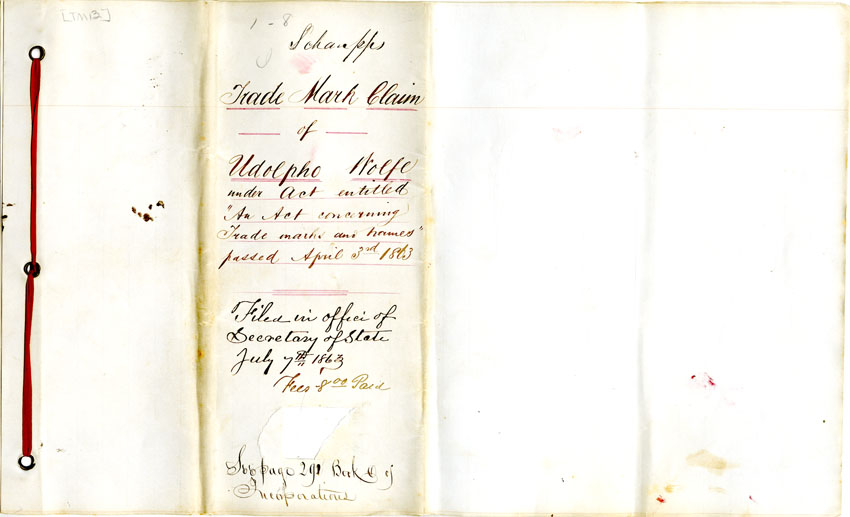 [TM13]
1 - 8
Schnapps
Trade Mark Claim
of
Udolpho Wolfe
under Act entitled
"An Act concerning
Trade marks and names"
passed April 3rd 1863
Filed in office of
Secretary of State
July 7th 1863
Fees 8 00 Paid
See page 291 Book C of
Incorporations